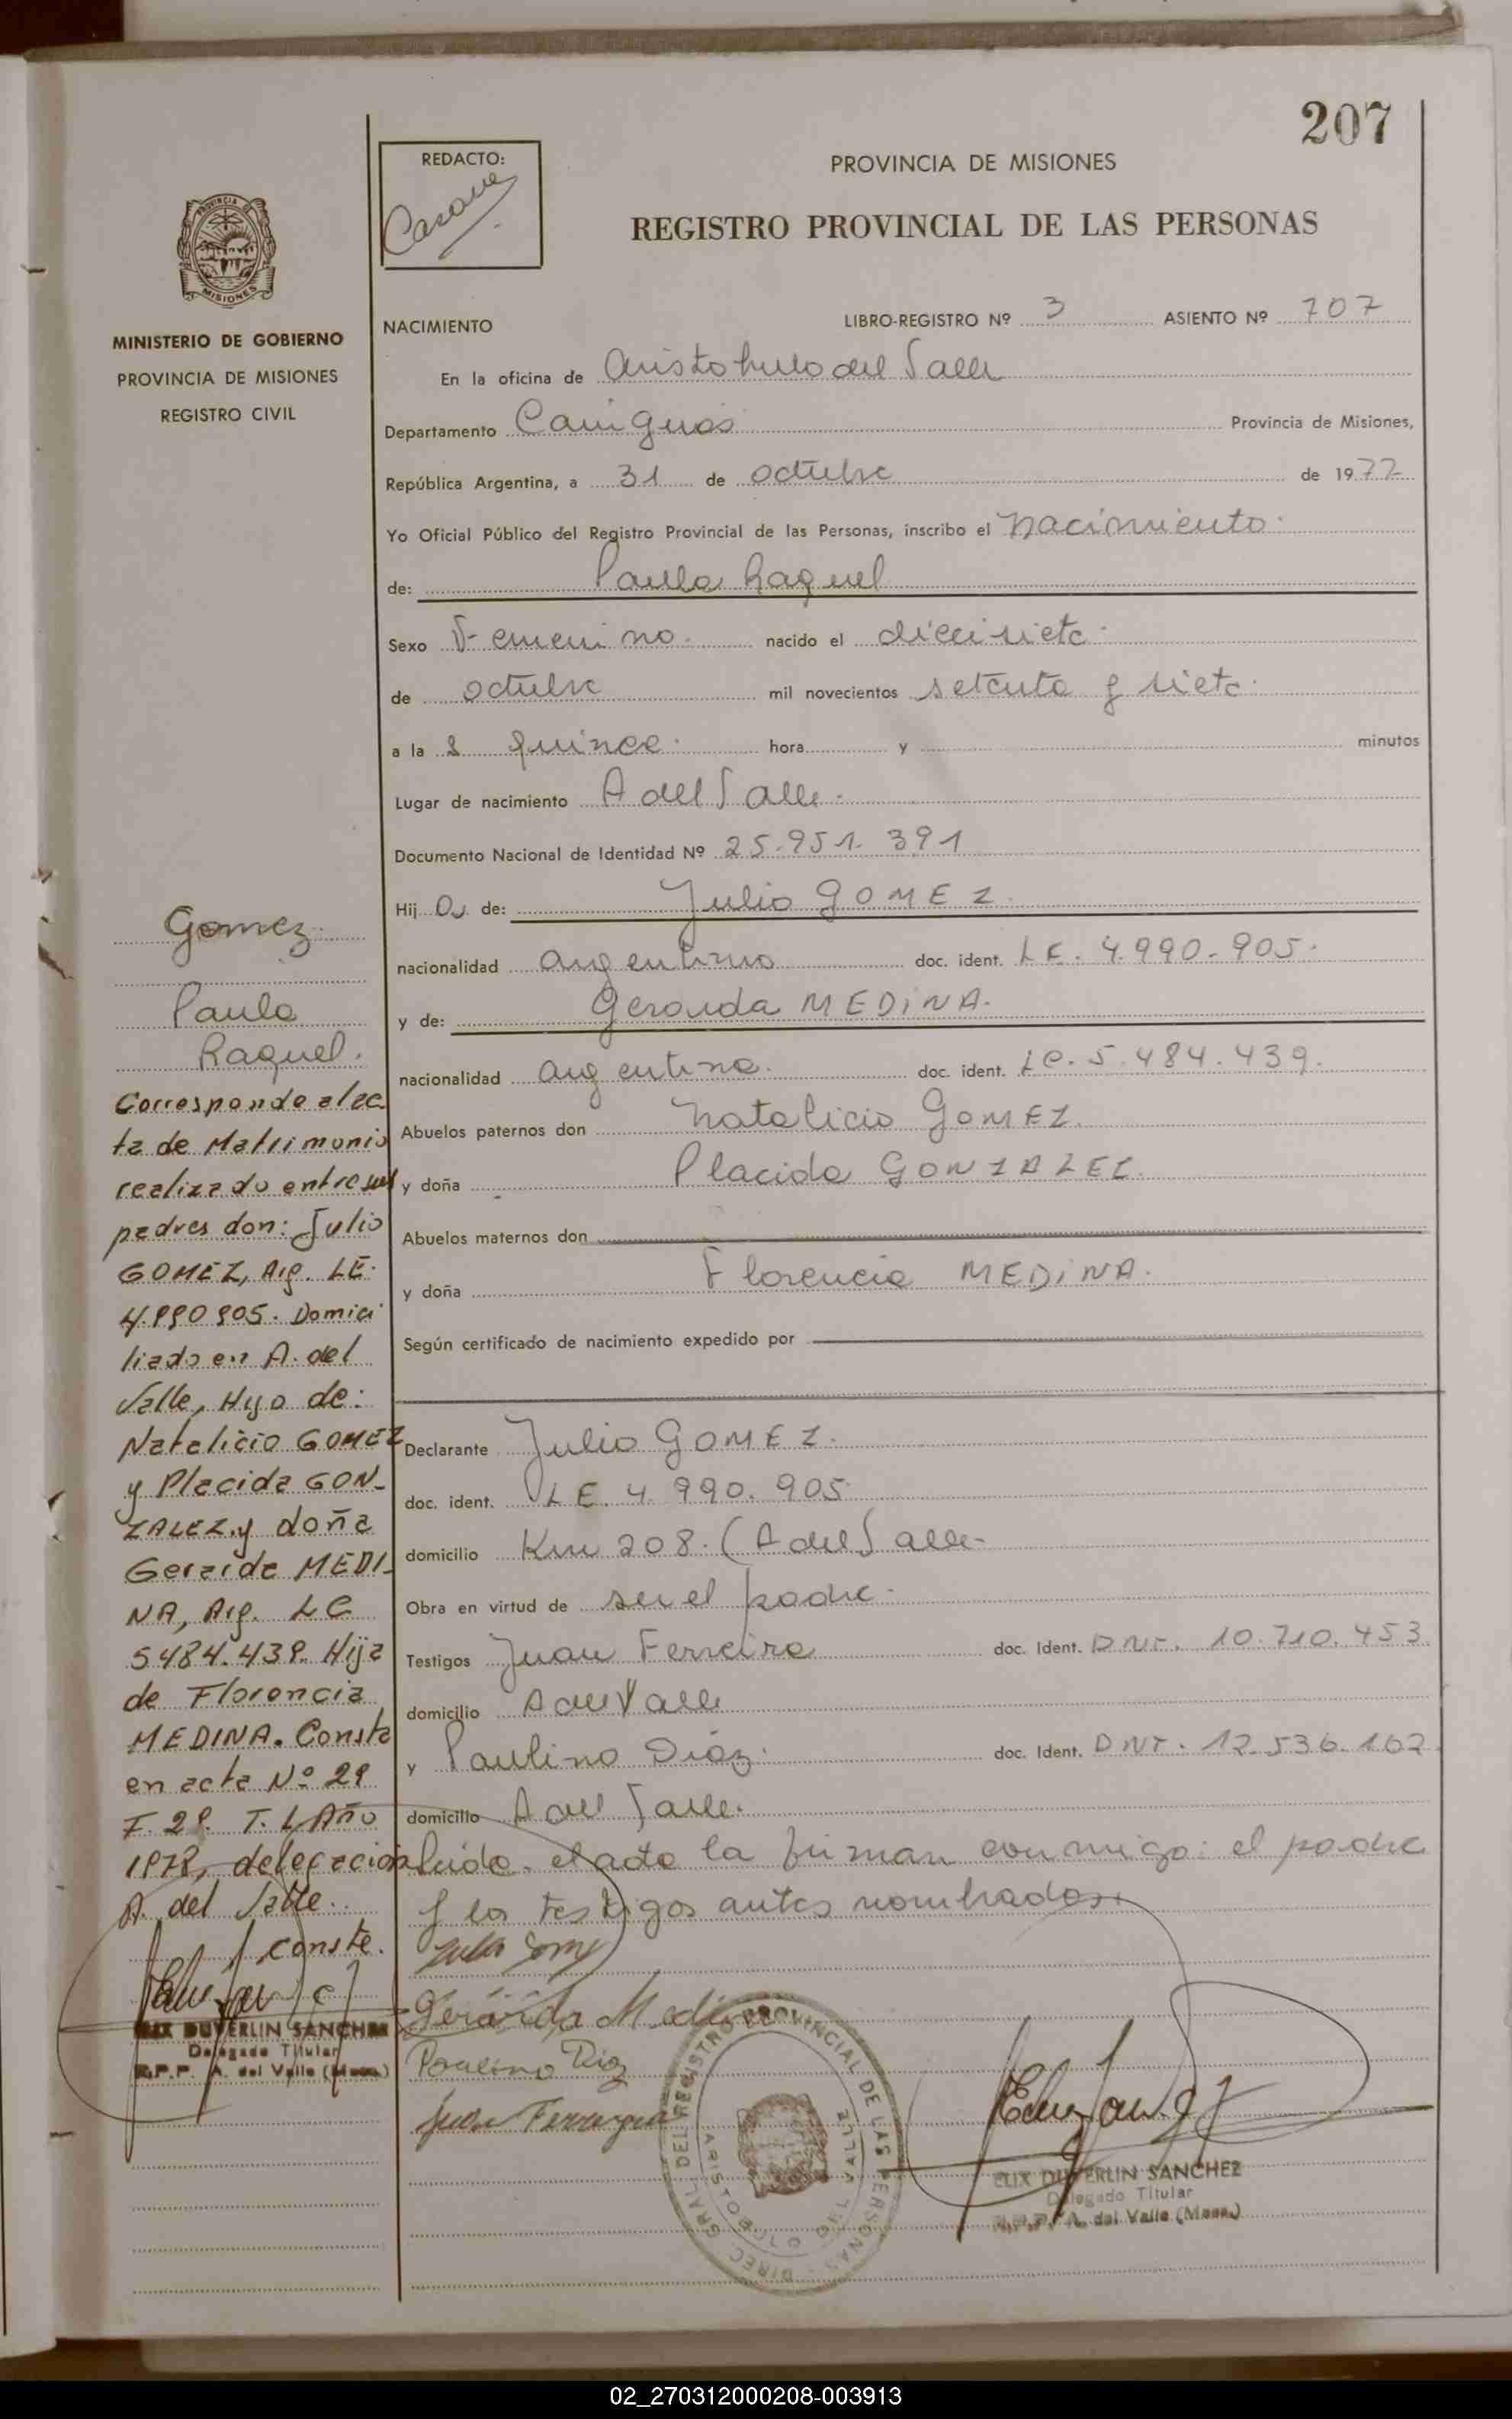 207
REDACTO:
PROVINCIA DE MISIONES
REGISTRO PROVINCIAL DE LAS PERSONAS
PROVINCIA
MISIONES
MINISTERIO DE GOBIERNO
PROVINCIA DE MISIONES
REGISTRO CIVIL
NACIMIENTO LIBRO-REGISTRO Nº 3 ASIENTO Nº 707
En la oficina de Aristobulo del Valle
Departamento Cainguas Provincia de Misiones,
República Argentina, a 31 de octubre de 1977
Yo Oficial Público del Registro Provincial de las Personas, inscribo el nacimiento
de: Paula Raquel
Sexo Femenino. nacido el diecisiete
de octubre mil novecientos setenta y siete
a la s quince. hora y minutos
Lugar de nacimiento A del Valle
Documento Nacional de Identidad Nº 25.951.391
Hij a de: Julio GOMEZ
nacionalidad argentino doc. ident. LE. 4.990.905
y de: Geraida MEDINA.
nacionalidad argentina. doc. ident. LC. 5.484.439.
Abuelos paternos don Natalicio GOMEZ
y doña Placida GONZALEZ
Abuelos maternos don
y doña Florencia MEDINA.
Según certificado de nacimiento expedido por
Declarante Julio GOMEZ.
doc. ident. LE. 4.990.905
domicilio Km 208. (A del Valle
Obra en virtud de ser el padre.
Testigos Juan Ferreira doc. Ident. DNI. 10.710.453
domicilio A del Valle
y Paulino Diáz. doc. Ident. DNI. 12.536.162
domicilio A del Valle.
Leida el acta la firman conmigo: el padre
y los testigos antes nombrados
Julio Gomez
Geraida Medina
Paulino Diaz
Gomez
Paula
Raquel.
Corresponde al ac
ta de Matrimonio
realizado entre sus
padres don: Julio
GOMEZ, Arg. LE.
4.990905. Domici
liado en A. del
Valle, Hijo de:
Natalicio GOMEZ
y Placida GON-
ZALEZ. y doña
Geraida MEDI-
NA, Arg. LC
5484.439. Hija
de Florencia
MEDINA. Consta
en acta Nº 29
F. 29. T. 1 Año
1978, delegacion
A. del Valle.
conste.
ELIX DUVERLIN SANCHEZ
Delegado Titular
R.P.P. A. del Valle (Mnes.)
DIREC. GRAL. DEL REGISTRO PROVINCIAL DE LAS PERSONAS
ARISTOBULO DEL VALLE
ELIX DUVERLIN SANCHEZ
Delegado Titular
R.P.P. A. del Valle (Mnes.)
02_270312000208-003913